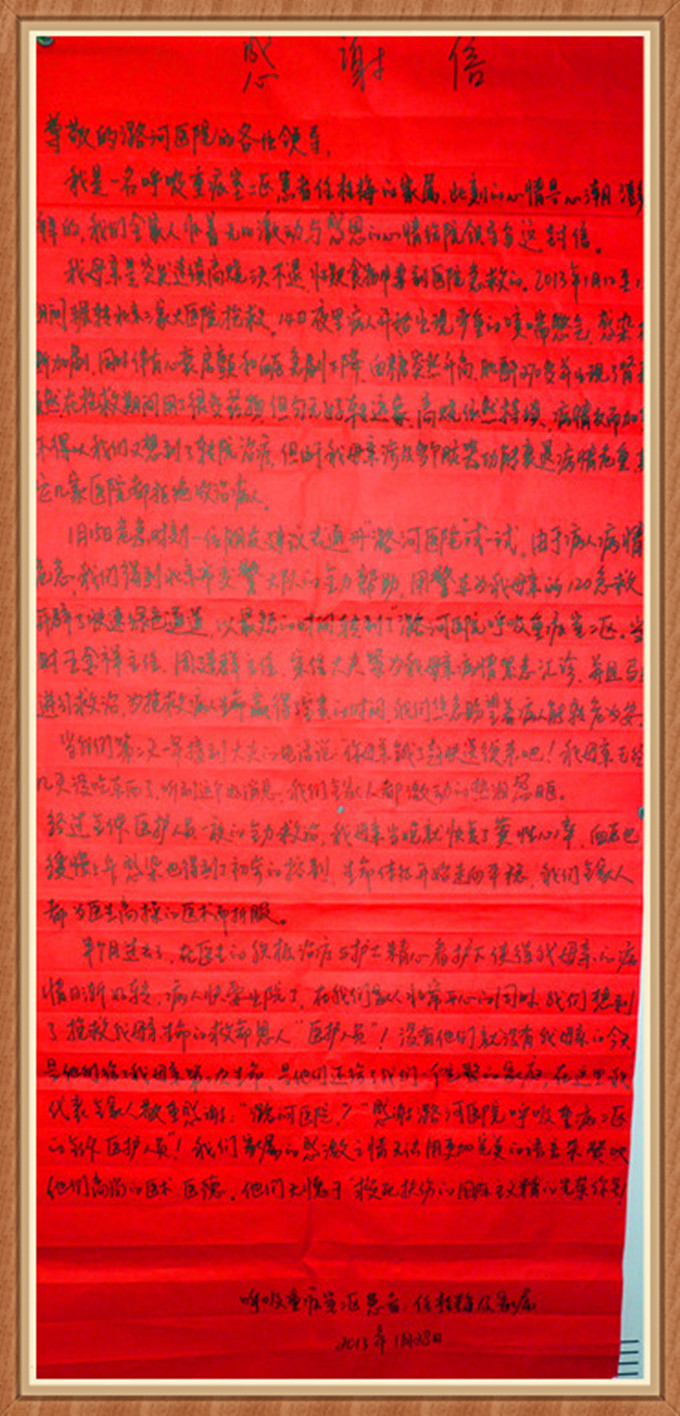 感谢信
尊敬的潞河医院的各位领导，
我是一名呼吸重症室二区患者任桂梅的家属，此刻的心情是心潮
的，我们全家人怀着无比激动与感恩的心情给院领导写这封信。
我母亲是突然连续高烧决不退 饮食 到医院急救的。2013年1月12至
期间辗转北京 家大医院抢救。14日夜里病人开始出现严重的咳喘憋气，感染
加剧，同时伴有心衰房颤和血压急剧下降，血糖突然升高，肌酐 并出现了肾
然在抢救期间用了很多药物，但均无好转迹象，高烧依然持续，病情反而加
不得以我们又想到了转院治病，但由于我母亲涉及多个脏器功能衰退病情危重，
几家医院都拒绝收治病人。
1月15日危急时刻一位朋友建议去通州“潞河医院”试一试，由于病人病情
危急，我们得到北京市交警大队的全力帮助，用警车为我母亲的120急救
开辟了快速绿色通道，以最短的时间转到了“潞河医院呼吸重症室二区。当
时王金祥主任、周进群主任、宋佳大夫等为我母亲病情紧急汇诊，并且马
进行救治，为抢救病人生命赢得了宝贵的时间，我们焦急盼望着病人能转危为安。
当我们第二天一早接到大夫的电话说“你母亲饿了赶快送饭来吧！我母亲已经
几天没吃东西了，听到这个好消息，我们全家人都激动的热泪盈眶。
经过全体医护人员一夜的全力救治，我母亲当晚就恢复了窦性心率，血压也
缓慢上升 感染也得到了初步的控制，生命体征开始走向平稳，我们全家人
都为医生高操的医术而折服。
半个月过去了，在医生的积极治疗与护士精心看护下使得我母亲的病
情日渐好转，病人快要出院了，在我们家人 开心的同时，我们想到
了抢救我母亲生命的救命恩人“医护人员”！没有他们就没有我母亲的今天
是他们给了我母亲第二次生命，是他们还给了我们一个完整的家庭，在这里我
代表全家人敬重感谢：“潞河医院？”感谢潞河医院呼吸重病二区
的全体医护人员”！我们家属的感激之情无法用更加完美的语言来赞叹
他们高尚的医术医德，他们无愧于“救死扶伤的国际主义精的光荣称号
呼吸重症室二区患者：任桂梅及家属
2013年1月28日